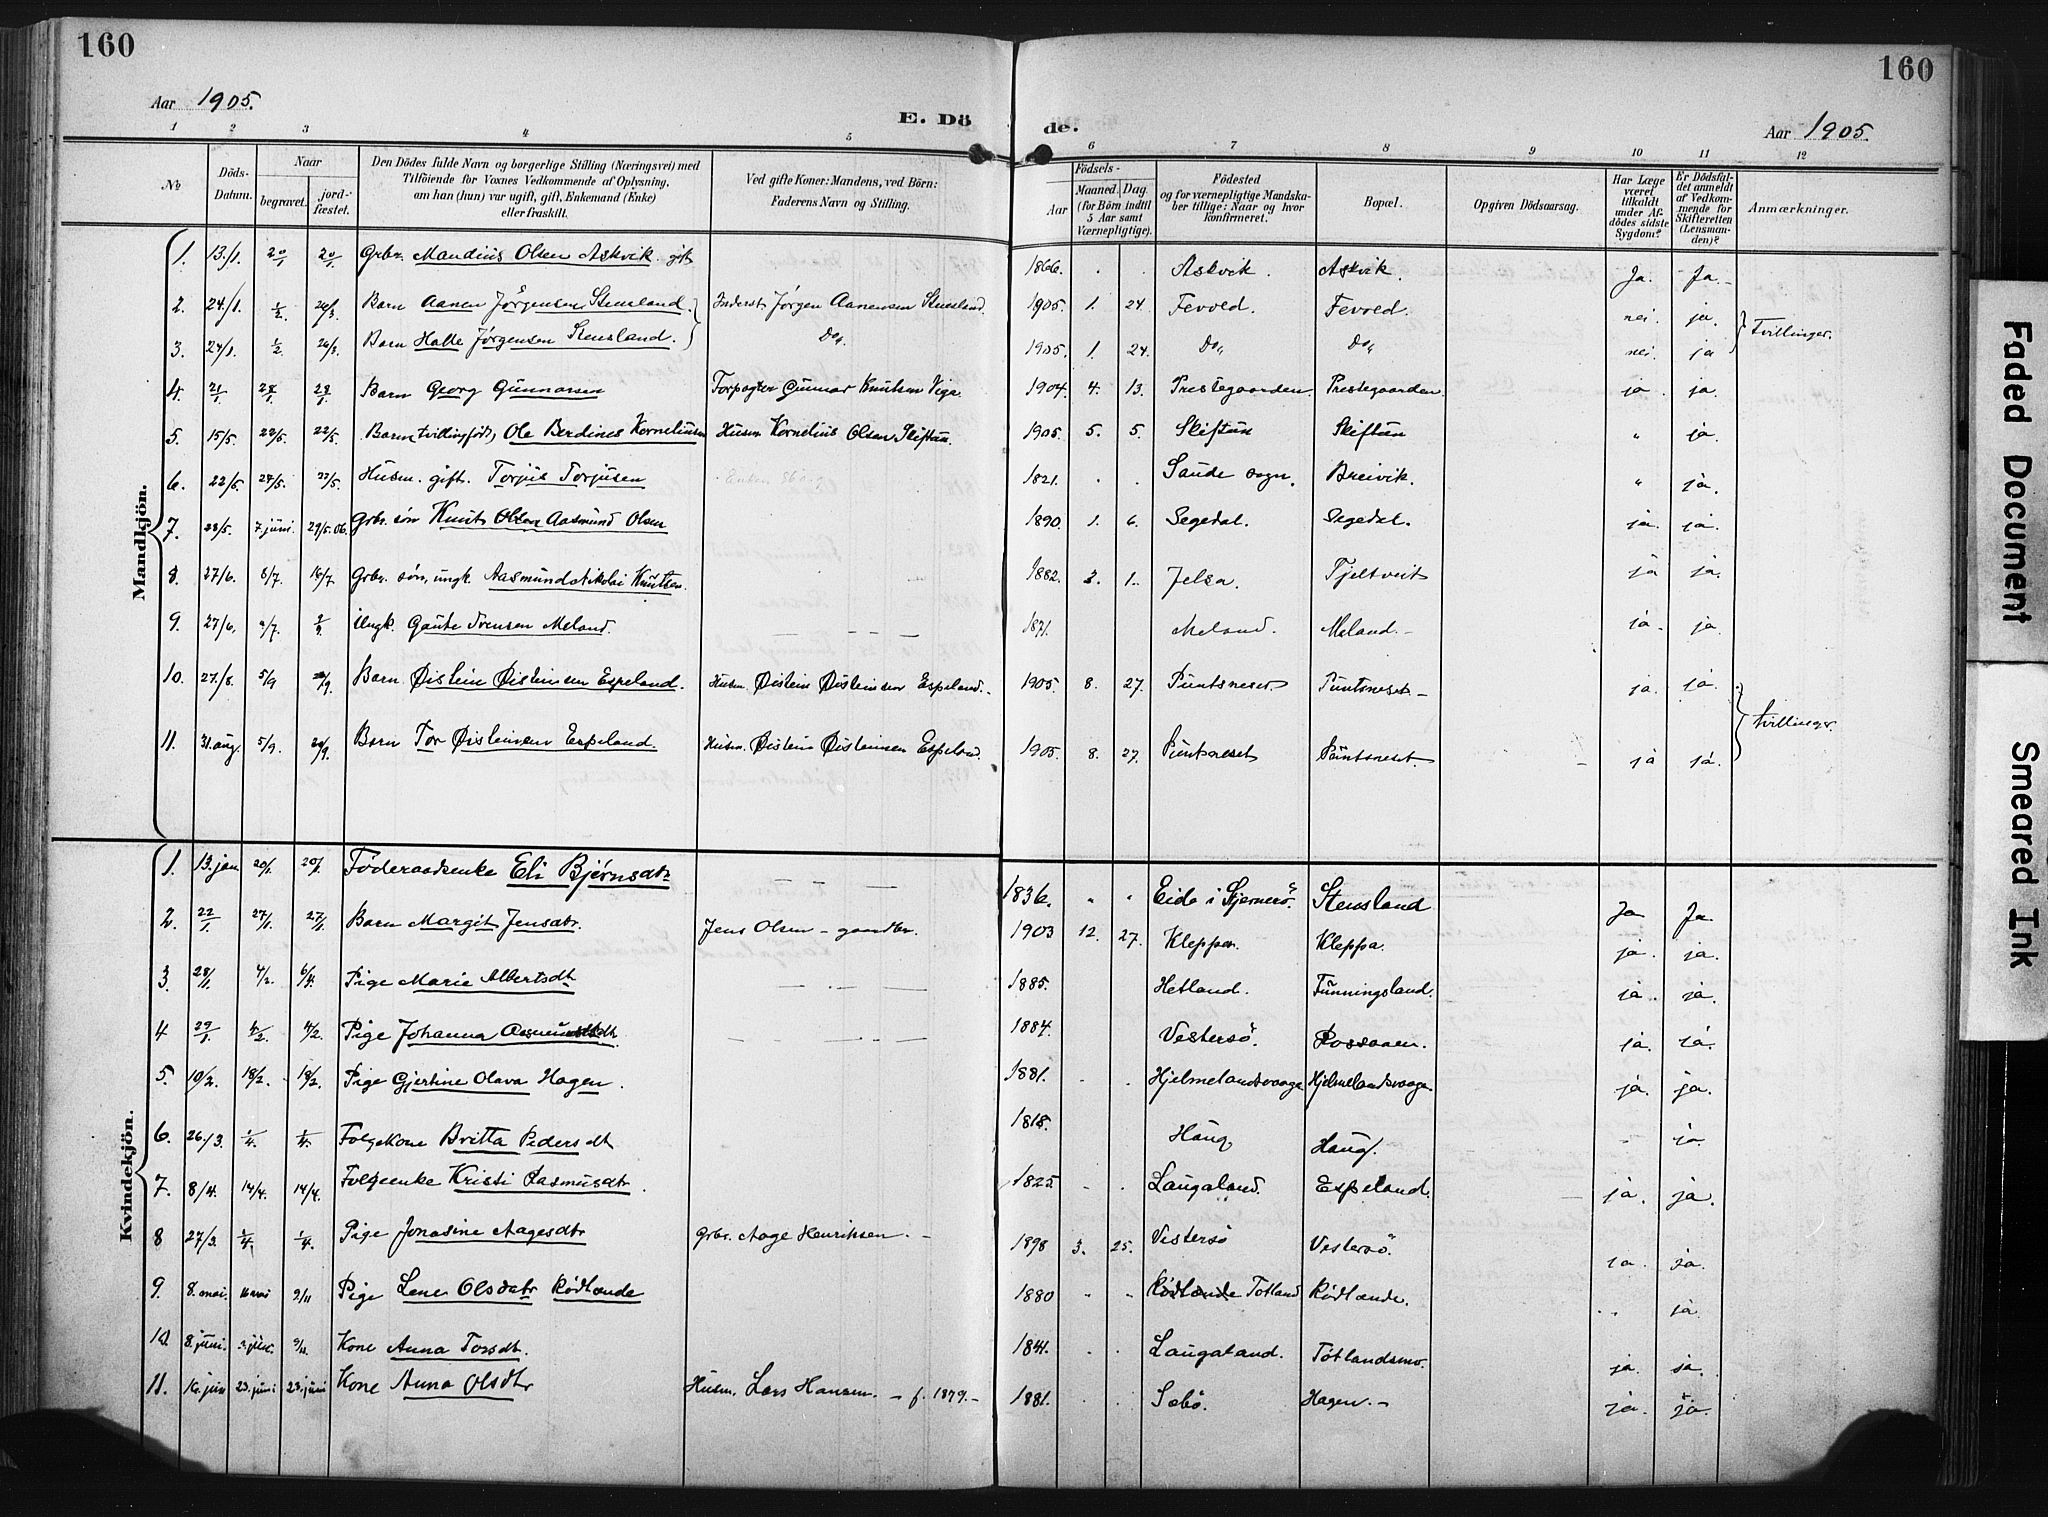 160
160
Aar 1905.
E. Dö
de.
Aar 1905.
1 2 3 4 5 6 7 8 9 10 11 12
№
Döds-Datum.
Naar
begravet.
jord-fæstet.
Den Dödes fulde Navn og borgerlige Stilling (Næringsvei) med
Tilföiende for Voxnes Vedkommende af Oplysning,
om han (hun) var ugift, gift, Enkemand (Enke)
eller fraskilt.
Ved gifte Koner: Mandens, ved Börn:
Faderens Navn og Stilling.
Födsels-
Aar
Maaned. Dag.
(for Börn indtil
5 Aar samt
Værnepligtige).
Födested
og for værnepligtige Mandska-
ber tillige: Naar og hvor
konfirmeret.
Bopæl.
Opgiven Dödsaarsag.
Har Læge
været
tilkaldt
under Af-
dödes sidste
Sygdom?
Er Dödsfal-
det anmeldt
af Vedkom-
mende for
Skifteretten
(Lensman-
den)?
Anmærkninger.
Mandkjön.
1. 13/1. 20/1 20/1. Grbr. Mandius Olsen Askvik gift 1866. Askvik. Askvik. Ja. Ja.
2. 24/1. 1/2. 26/3 Barn Aanen Jørgensen Stensland. Inderst. Jørgen Aanensen Stensland. 1905. 1. 24. Fevold. Fevold. nei. ja. Tvillinger.
3. 24/1. 1/2. 26/3 Barn Halle Jørgensen Stensland. Do. 1905. 1. 24. Do. Do. nei. ja
4. 21/1 28/1 28/1. Barn Georg Gunnarsen Forpagter Gunnar Knutsen Viga. 1904. 4. 13. Prestegaarden. Prestegaarden. ja. ja.
5. 15/5. 22/5. 22/5. Barn tvillingfödt, Ole Berdines Korneliusen Husm. Kornelius Olsen Skiftun. 1905. 5. 5. Skiftun Skiftun " ja.
6. 22/5. 27/5. 22/5. Husm. gift. Torjus Torjusen 1821. Saude sogn. Breivik. " ja.
7. 28/5. 7. juni. 29/5.06. Grbr. søn Knut Olsen Aasmund Olsen 1890. 1. 6. Segedal. Segedal. ja. ja.
8. 27/6. 8/7. 16/7. Grbr. søn, ungk. Aasmund Nikolai Knutsen. 1882. 3. 1. Jelsa. Tjeltveit ja ja.
9. 27/6. /7. Ungk. Gaute Svensen Meland. 1871. Meland. Meland. ja. ja.
10. 27/8. 5/9 /9. Barn Øistein Øisteinsen Espeland. Husm. Øistein Øisteinsen Espeland. 1905. 8. 27. Puntsneset Puntsneset ja. ja. tvillinger.
11. 31. aug. 5/9. 20/9. Barn Tor Øisteinsen Espeland. Husm. Øistein Øisteinsen Espeland. 1905. 8. 27. Puntsneset Puntsneset. ja ja.
Kvindekjön.
1. 13. jan 20/1. 20/1. Føderaadsenke Eli Bjørnsdtr 1836. " " Eide i Sjernerö. Stensland Ja Ja.
2. 22/1 27/1. 27/1. Barn Margit Jensdtr. Jens Olsen - gaardbr. 1903 12. 27. Kleppa. Kleppa. ja. ja.
3. 28/1. 4/2. 6/4. Pige Marie Albertsdt 1885. Hetland. Funningsland. ja. ja.
4 29/1. 4/2. 4/2. Pige Johanna Aasmundsdt. 1884. Vestersö. Rossaaen. ja. ja.
5. 10/2. 18/2. 18/2. Pige Gjertine Olava Hagen. 1881. Hjelmelandsvaage Hjelmelandsvaage. ja. ja.
6. 26/3. 1/4. 1/4. Folgekone Britta Pedersdt 1815. Haug Haug. ja.
7. 8/4. 14/4. 14/4. Folgeenke Kristi Rasmusdtr. 1825. Laugaland. Espeland. ja. ja.
8 27/3. 1/4. 1/4. Pige Jonasine Aagesdtr Grbr. Aage Henriksen. 1898 3. 25. Vestersö Vestersö. ja. ja.
9. 8. mai. 16 mai 9/11 Pige Lene Olsdatr Rødlande 1880 Rødlande Totland Rødlande. ja.
10. 8. juni. Kone Anna Torsdt. 1841. Laugaland. Totlandsmo. ja. ja.
11. 16. jun 23. juni 23. juni Kone Anna Olsdtr Husm. Lars Hansen. - f. 1879. 1881. Sebö. Hagen. ja. ja.
Faded Document
Smeared Ink